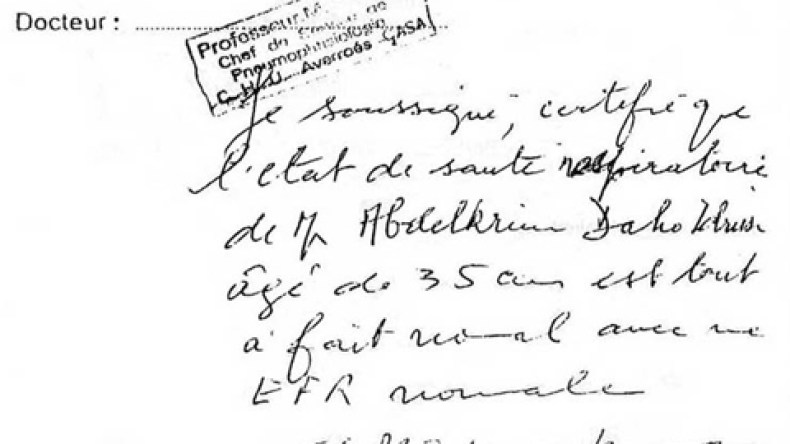 Docteur :
Professeur M
Chef de Service de
Pneumophtisiologie
C.H.U. Averroès CASA
Je soussigné, certifie que
l'etat de santé respiratoire
de Mr Abdelkrim Daho
âgé de 35 ans est tout
à fait normal avec une
EFR normale